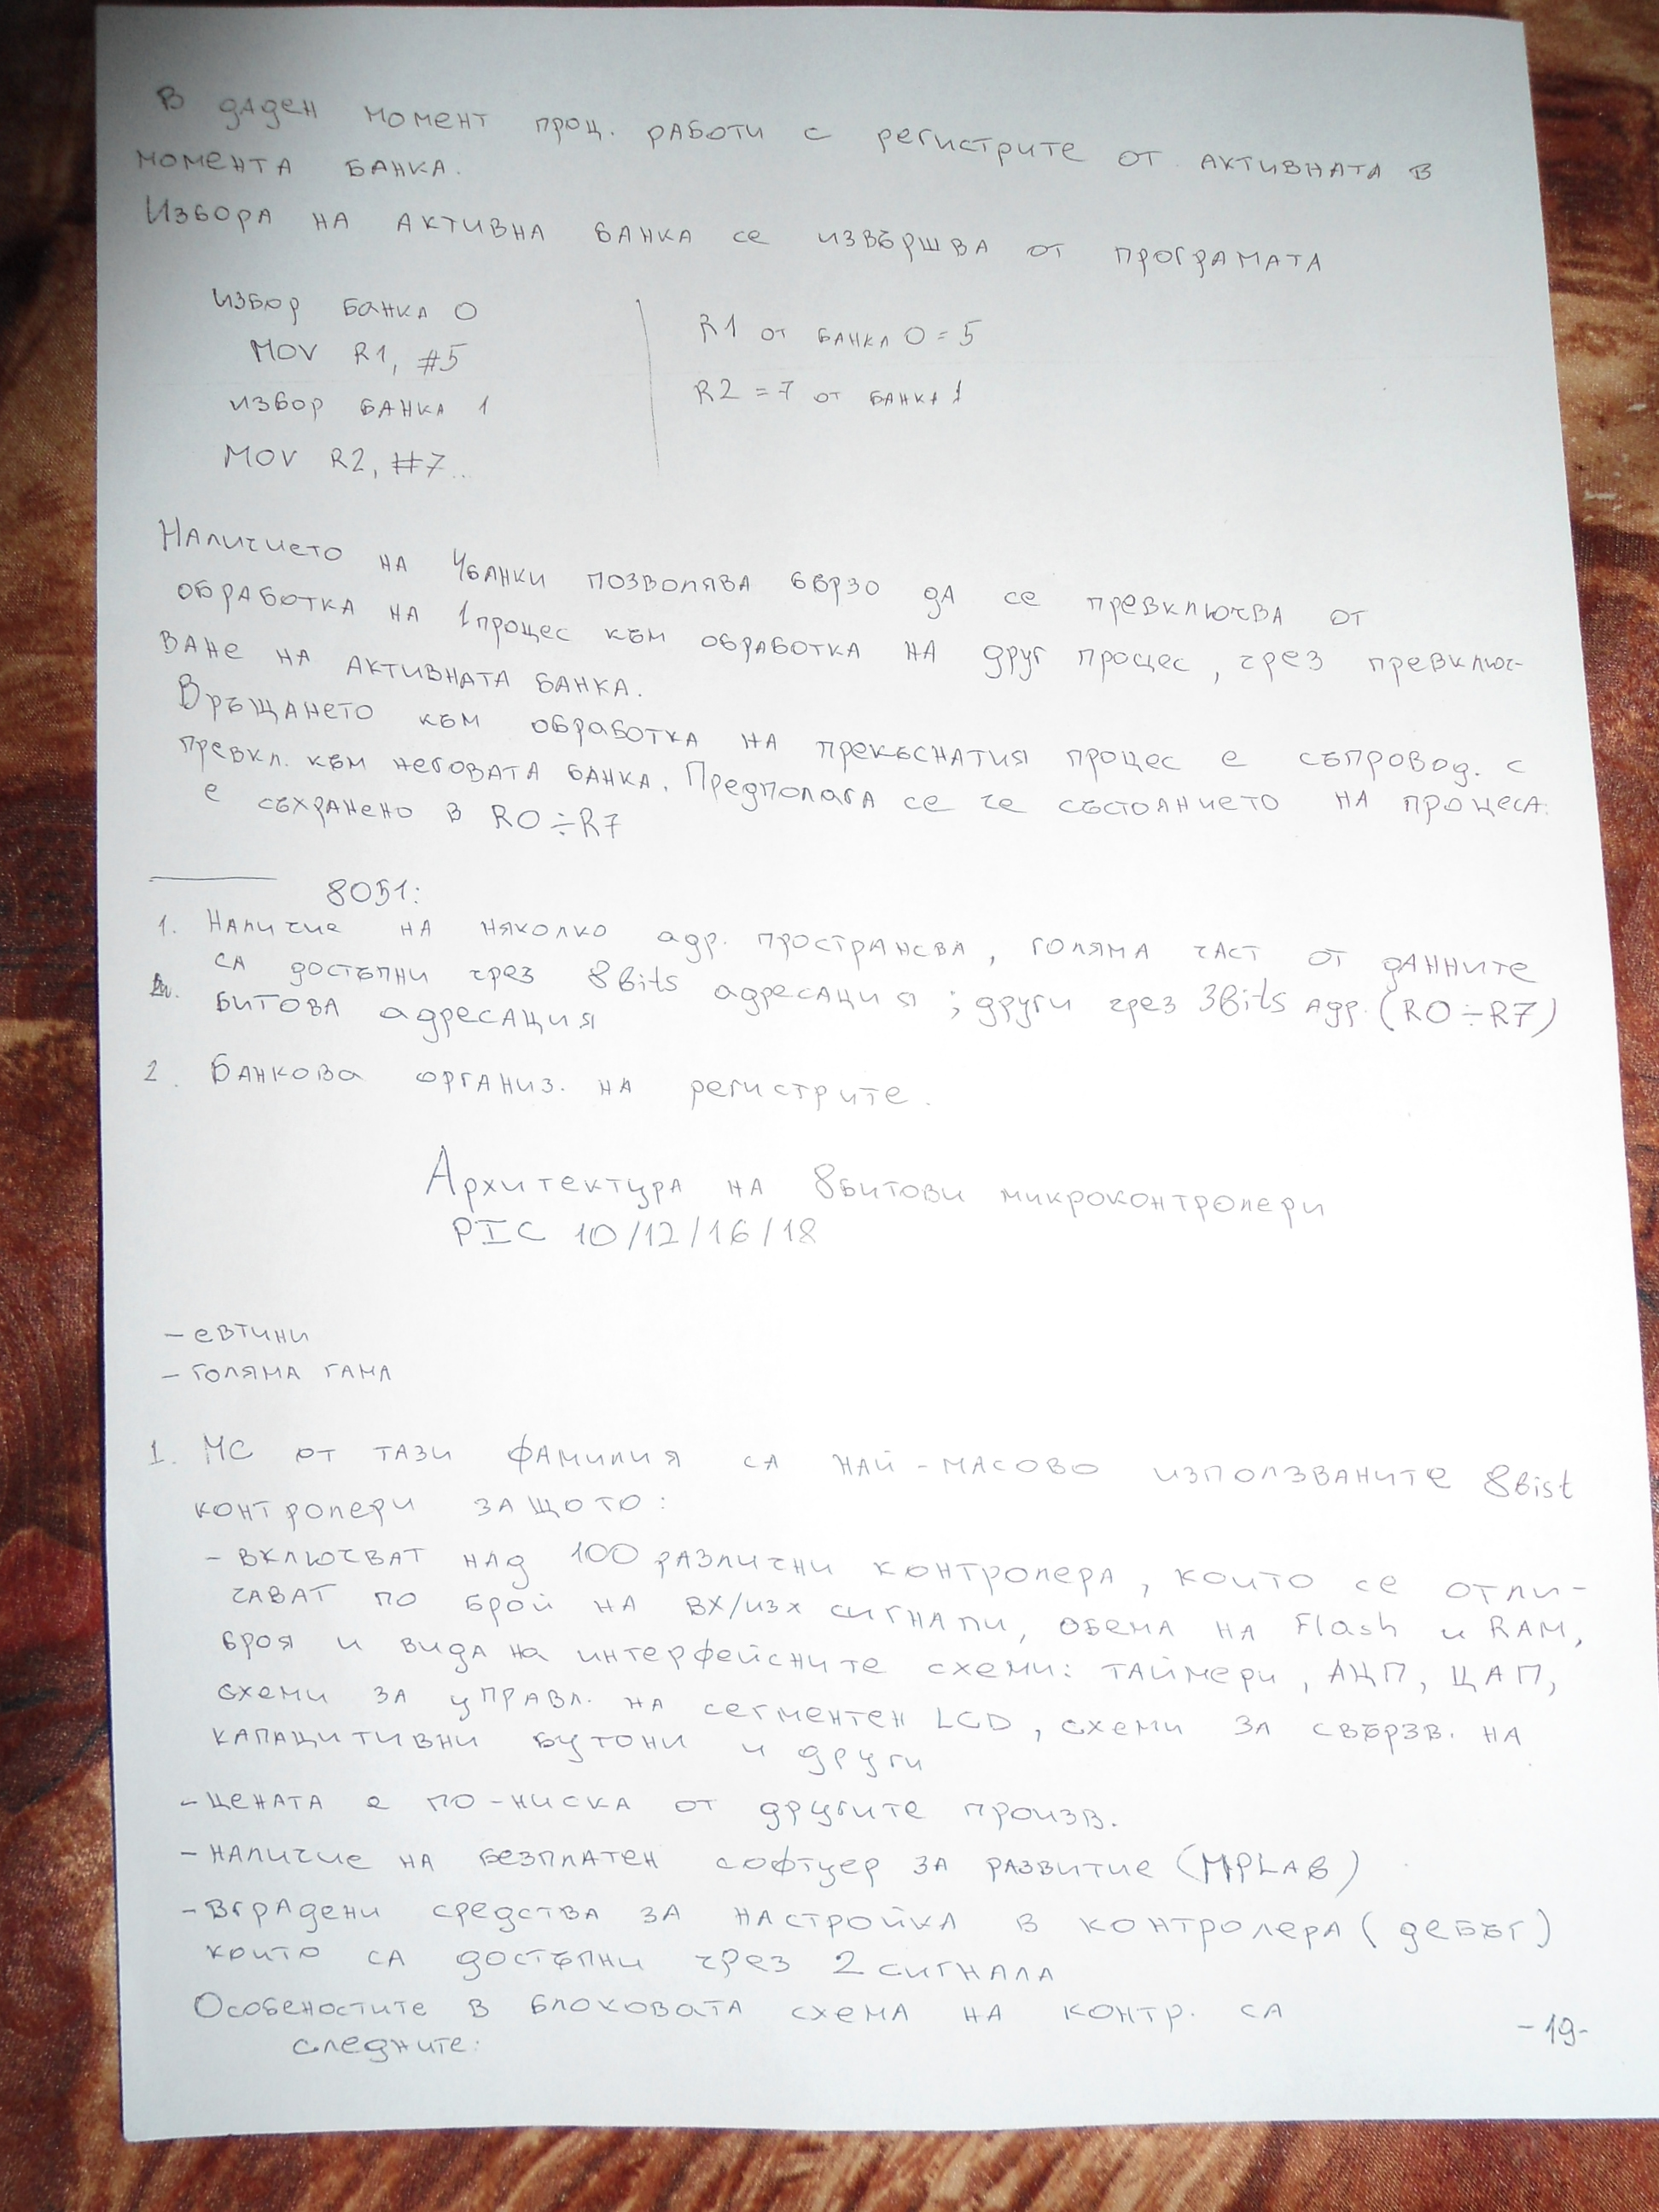 В даден момент проц. работи с регистрите от активната в
момента банка.
Избора на активна банка се извършва от програмата
избор банка 0
MOV R1, #5
избор банка 1
MOV R2, #7..
R1 от банка 0 = 5
R2 = 7 от банка 1
Наличието на 4банки позволява бързо да се превключва от
обработка на 1процес към обработка на друг процес, чрез превключ-
ване на активната банка.
Връщането към обработка на прекъснатия процес е съпровод. с
превкл. към неговата банка. Предполага се че състоянието на процеса
е съхранено в R0÷R7
8051:
1. Наличие на няколко адр. пространсва, голяма част от данните
са достъпни чрез 8bits адресация; други чрез 3bits адр. (R0÷R7)
битова адресация
2. Банкова организ. на регистрите.
Архитектура на 8битови микроконтролери
PIC 10/12/16/18
- евтини
- голяма гама
1. МС от тази фамилия са най-масово използваните 8bist
контролери защото:
- включват над 100 различни контролера, които се отли-
чават по брой на вх/изх сигнали, обема на Flash и RAM,
броя и вида на интерфейсните схеми: таймери, АЦП, ЦАП,
схеми за управл. на сегментен LCD, схеми за свързв. на
капацитивни бутони и други
- цената е по-ниска от другите произв.
- наличие на безплатен софтуер за развитие (MPLAB)
- вградени средства за настройка в контролера (дебъг)
които са достъпни чрез 2 сигнала
Особеностите в блоковата схема на контр. са
следните:
-19-